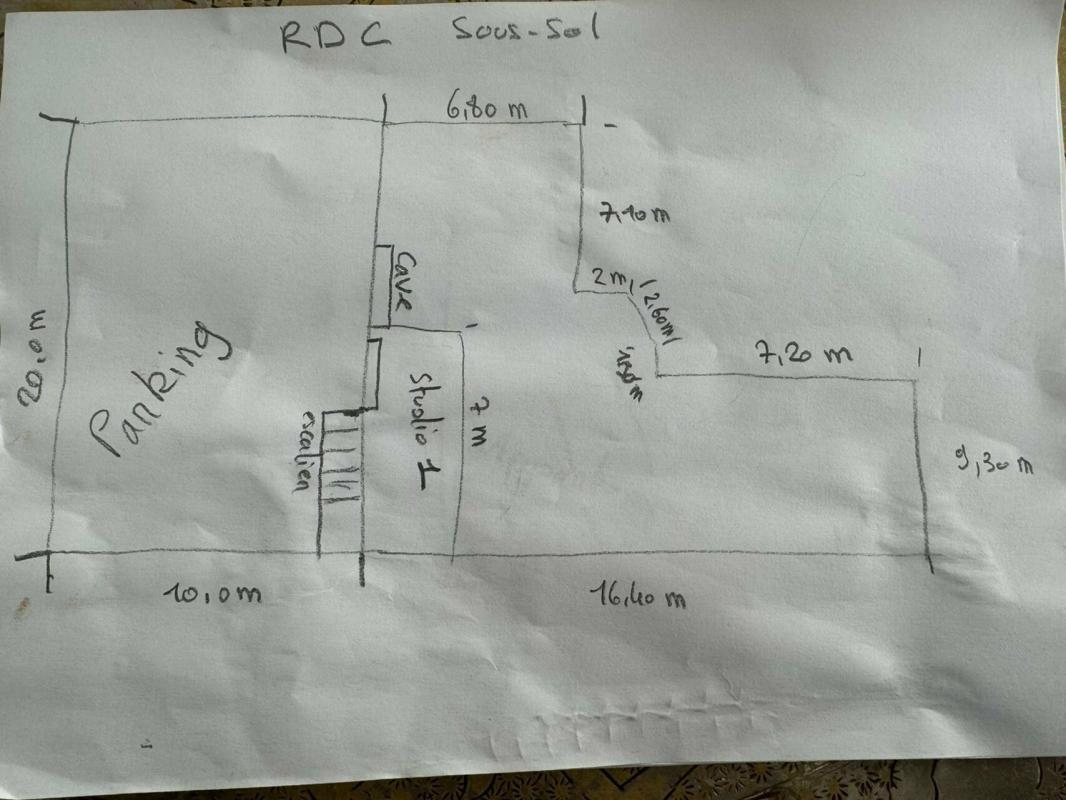 RDC Sous-Sol
6,80 m
7,10 m
2 m
2,60 m
7,20 m
20,0 m
Parking
Cave
Studio 1
7 m
escalier
9,30 m
10,0 m
16,40 m